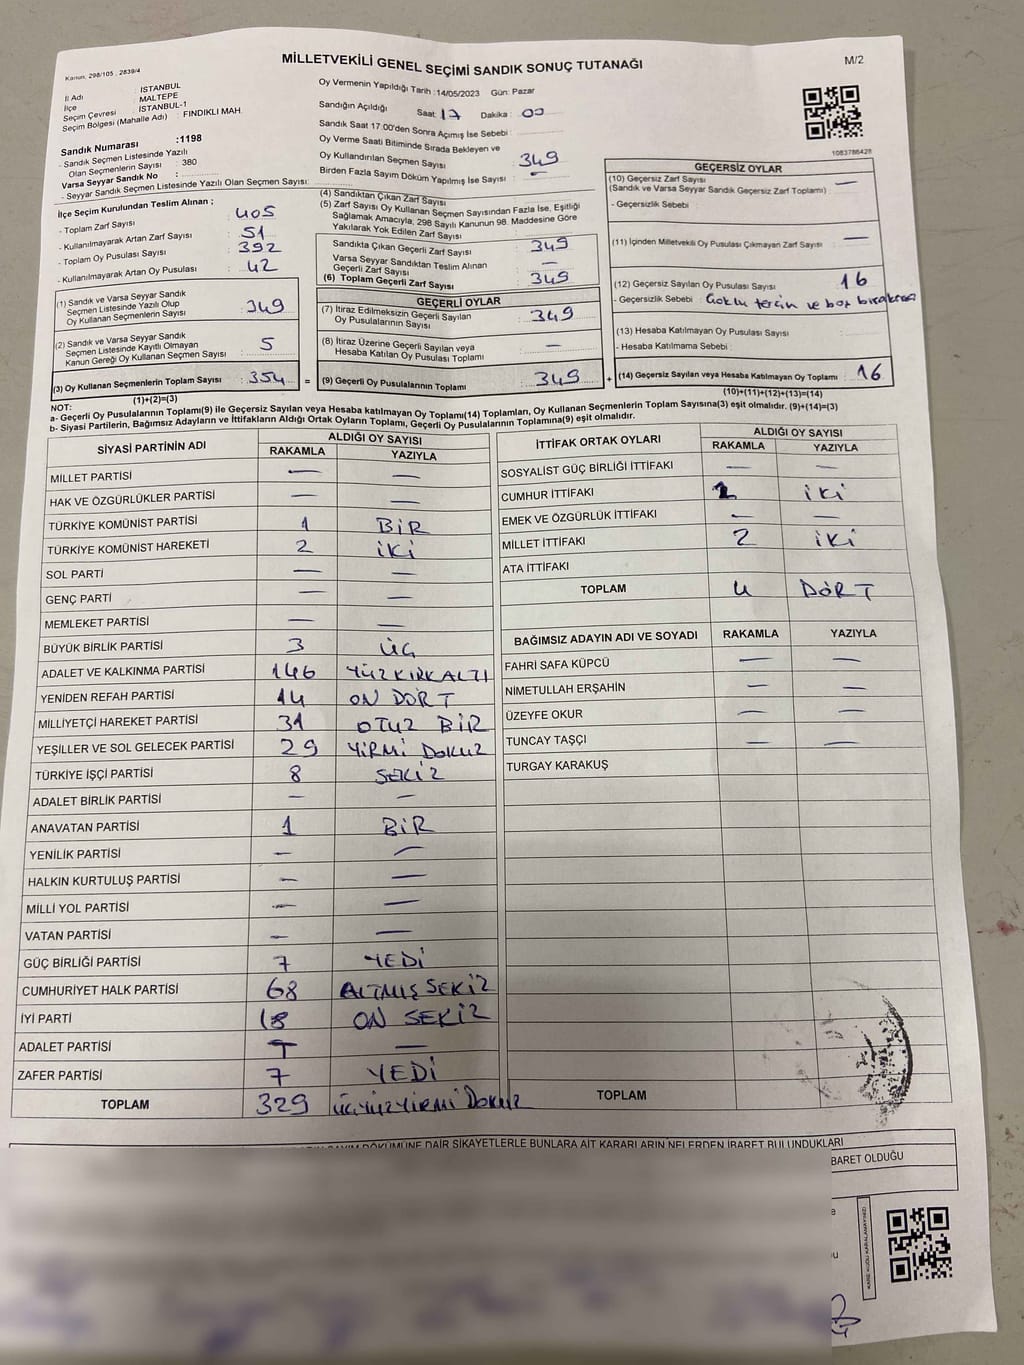 MİLLETVEKİLİ GENEL SEÇİMİ SANDIK SONUÇ TUTANAĞI
M/2
Kanun, 298/105 , 2839/4
İl Adı : İSTANBUL
İlçe : MALTEPE
Seçim Çevresi : İSTANBUL-1
Seçim Bölgesi (Mahalle Adı) : FINDIKLI MAH.
Sandık Numarası :1198
- Sandık Seçmen Listesinde Yazılı
Olan Seçmenlerin Sayısı : 380
Varsa Seyyar Sandık No :
- Seyyar Sandık Seçmen Listesinde Yazılı Olan Seçmen Sayısı:
Oy Vermenin Yapıldığı Tarih :14/05/2023 Gün: Pazar
Sandığın Açıldığı Saat: 17 Dakika : 00
Sandık Saat 17:00'den Sonra Açımış İse Sebebi :
Oy Verme Saati Bitiminde Sırada Bekleyen ve
Oy Kullandırılan Seçmen Sayısı : 349
Birden Fazla Sayım Döküm Yapılmış İse Sayısı : —
1083786428
İlçe Seçim Kurulundan Teslim Alınan ;
- Toplam Zarf Sayısı : 405
- Kullanılmayarak Artan Zarf Sayısı : 51
- Toplam Oy Pusulası Sayısı : 392
- Kullanılmayarak Artan Oy Pusulası : 42
(1) Sandık ve Varsa Seyyar Sandık
Seçmen Listesinde Yazılı Olup
Oy Kullanan Seçmenlerin Sayısı : 349
(2) Sandık ve Varsa Seyyar Sandık
Seçmen Listesinde Kayıtlı Olmayan
Kanun Gereği Oy Kullanan Seçmen Sayısı : 5
(3) Oy Kullanan Seçmenlerin Toplam Sayısı : 354 =
(1)+(2)=(3)
(4) Sandıktan Çıkan Zarf Sayısı :
(5) Zarf Sayısı Oy Kullanan Seçmen Sayısından Fazla İse, Eşitliği
Sağlamak Amacıyla, 298 Sayılı Kanunun 98. Maddesine Göre
Yakılarak Yok Edilen Zarf Sayısı :
Sandıkta Çıkan Geçerli Zarf Sayısı : 349
Varsa Seyyar Sandıktan Teslim Alınan
Geçerli Zarf Sayısı : —
(6) Toplam Geçerli Zarf Sayısı : 349
GEÇERLİ OYLAR
(7) İtiraz Edilmeksizin Geçerli Sayılan
Oy Pusulalarının Sayısı : 349
(8) İtiraz Üzerine Geçerli Sayılan veya
Hesaba Katılan Oy Pusulası Toplamı : —
(9) Geçerli Oy Pusulalarının Toplamı : 349 +
GEÇERSİZ OYLAR
(10) Geçersiz Zarf Sayısı
(Sandık ve Varsa Seyyar Sandık Geçersiz Zarf Toplamı) : —
- Geçersizlik Sebebi :
(11) İçinden Milletvekili Oy Pusulası Çıkmayan Zarf Sayısı : —
(12) Geçersiz Sayılan Oy Pusulası Sayısı : 16
- Geçersizlik Sebebi : Çoklu tercih ve boş bırakma
(13) Hesaba Katılmayan Oy Pusulası Sayısı :
- Hesaba Katılmama Sebebi :
(14) Geçersiz Sayılan veya Hesaba Katılmayan Oy Toplamı : 16
(10)+(11)+(12)+(13)=(14)
NOT:
a- Geçerli Oy Pusulalarının Toplamı(9) ile Geçersiz Sayılan veya Hesaba katılmayan Oy Toplamı(14) Toplamları, Oy Kullanan Seçmenlerin Toplam Sayısına(3) eşit olmalıdır. (9)+(14)=(3)
b- Siyasi Partilerin, Bağımsız Adayların ve İttifakların Aldığı Ortak Oyların Toplamı, Geçerli Oy Pusulalarının Toplamına(9) eşit olmalıdır.
SİYASİ PARTİNİN ADI ALDIĞI OY SAYISI
RAKAMLA YAZIYLA
MİLLET PARTİSİ — —
HAK VE ÖZGÜRLÜKLER PARTİSİ — —
TÜRKİYE KOMÜNİST PARTİSİ 1 BİR
TÜRKİYE KOMÜNİST HAREKETİ 2 İKİ
SOL PARTİ — —
GENÇ PARTİ — —
MEMLEKET PARTİSİ — —
BÜYÜK BİRLİK PARTİSİ 3 ÜÇ
ADALET VE KALKINMA PARTİSİ 146 YÜZKIRKALTI
YENİDEN REFAH PARTİSİ 14 ON DÖRT
MİLLİYETÇİ HAREKET PARTİSİ 31 OTUZ BİR
YEŞİLLER VE SOL GELECEK PARTİSİ 29 YİRMİ DOKUZ
TÜRKİYE İŞÇİ PARTİSİ 8 SEKİZ
ADALET BİRLİK PARTİSİ — —
ANAVATAN PARTİSİ 1 BİR
YENİLİK PARTİSİ — —
HALKIN KURTULUŞ PARTİSİ — —
MİLLİ YOL PARTİSİ — —
VATAN PARTİSİ — —
GÜÇ BİRLİĞİ PARTİSİ 7 YEDİ
CUMHURİYET HALK PARTİSİ 68 ALTMIŞ SEKİZ
İYİ PARTİ 18 ON SEKİZ
ADALET PARTİSİ —
ZAFER PARTİSİ 7 YEDİ
TOPLAM 329 ÜÇYÜZYİRMİ DOKUZ
İTTİFAK ORTAK OYLARI ALDIĞI OY SAYISI
RAKAMLA YAZIYLA
SOSYALİST GÜÇ BİRLİĞİ İTTİFAKI — —
CUMHUR İTTİFAKI 2 İKİ
EMEK VE ÖZGÜRLÜK İTTİFAKI — —
MİLLET İTTİFAKI 2 İKİ
ATA İTTİFAKI
TOPLAM 4 DÖRT
BAĞIMSIZ ADAYIN ADI VE SOYADI RAKAMLA YAZIYLA
FAHRİ SAFA KÜPCÜ — —
NİMETULLAH ERŞAHİN — —
ÜZEYFE OKUR — —
TUNCAY TAŞÇI — —
TURGAY KARAKUŞ
TOPLAM
SAYIM DÖKÜMÜNE DAİR ŞİKAYETLERLE BUNLARA AİT KARARLARIN NELERDEN İBARET BULUNDUKLARI
BARET OLDUĞU